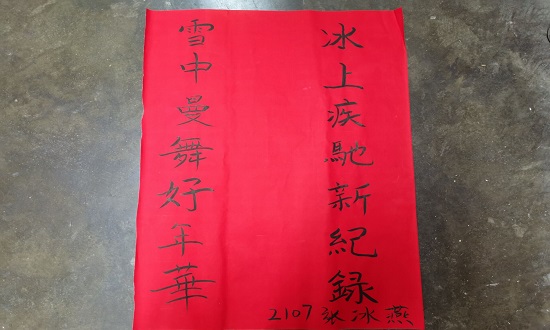 冰上疾馳新紀録
雪中曼舞好年華
2107張冰燕